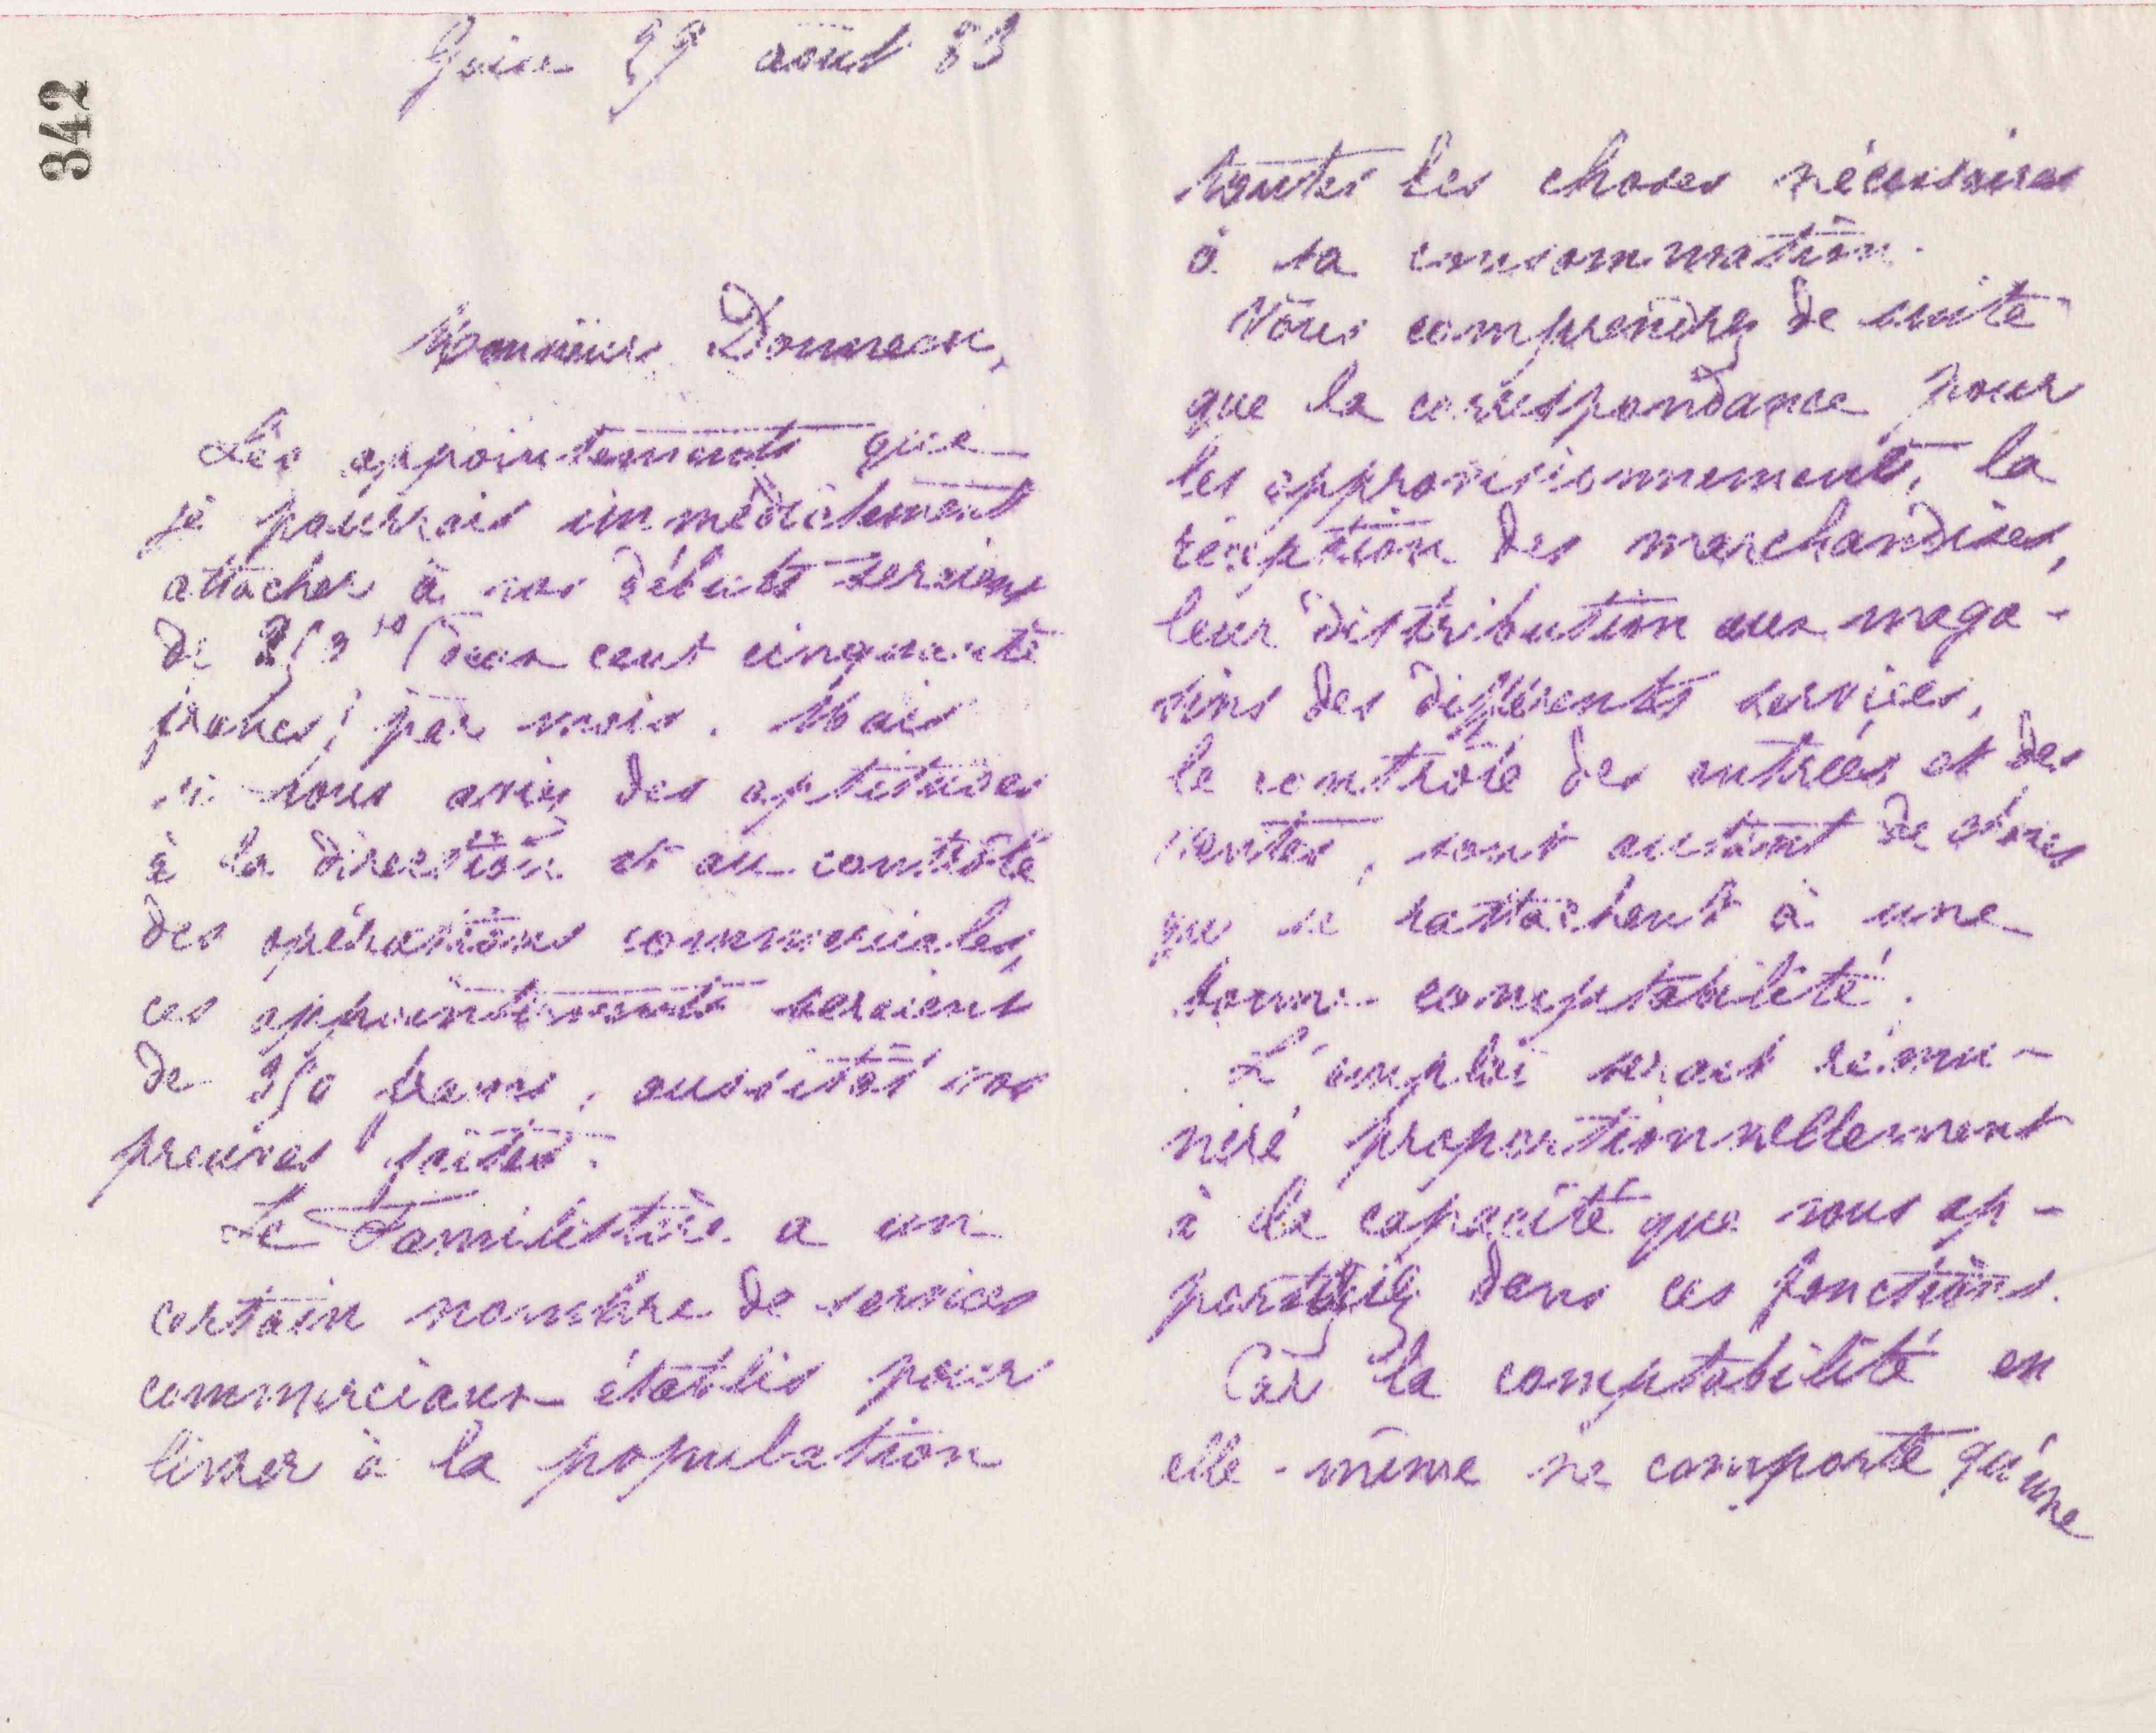 342
Guise 29 août 83
Monsieur Donneau,
Les appointements que
je pourrais immédiatement
attacher à vos débuts seraient
de 250 (deux cent cinquante
francs) par mois. Mais
si vous aviez des aptitudes
à la direction et au contrôle
des opérations commerciales,
ces appointements seraient
de 350 francs, aussitôt vos
preuves faites.
Le Familistère a un
certain nombre de services
commerciaux établis pour
livrer à la population
toutes les choses nécessaires
à sa consommation.
Vous comprendrez de suite
que la correspondance pour
les approvisionnements, la
réception des marchandises,
leur distribution aux maga-
sins des différents services,
le contrôle des entrées et des
ventes, sont autant de choses
qui se rattachent à une
bonne comptabilité.
L'emploi serait rému-
néré proportionnellement
à la capacité que vous ap-
porteriez dans ces fonctions.
Car la comptabilité en
elle-même ne comporte qu'une